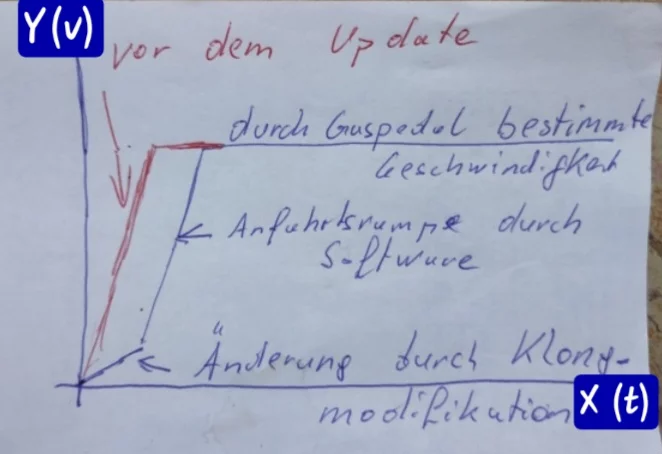 Y(v)
vor dem Update
durch Gaspedal bestimmte
Geschwindigkeit
Anfahrtsrampe durch
Software
Änderung durch Klong-
modifikation
X (t)